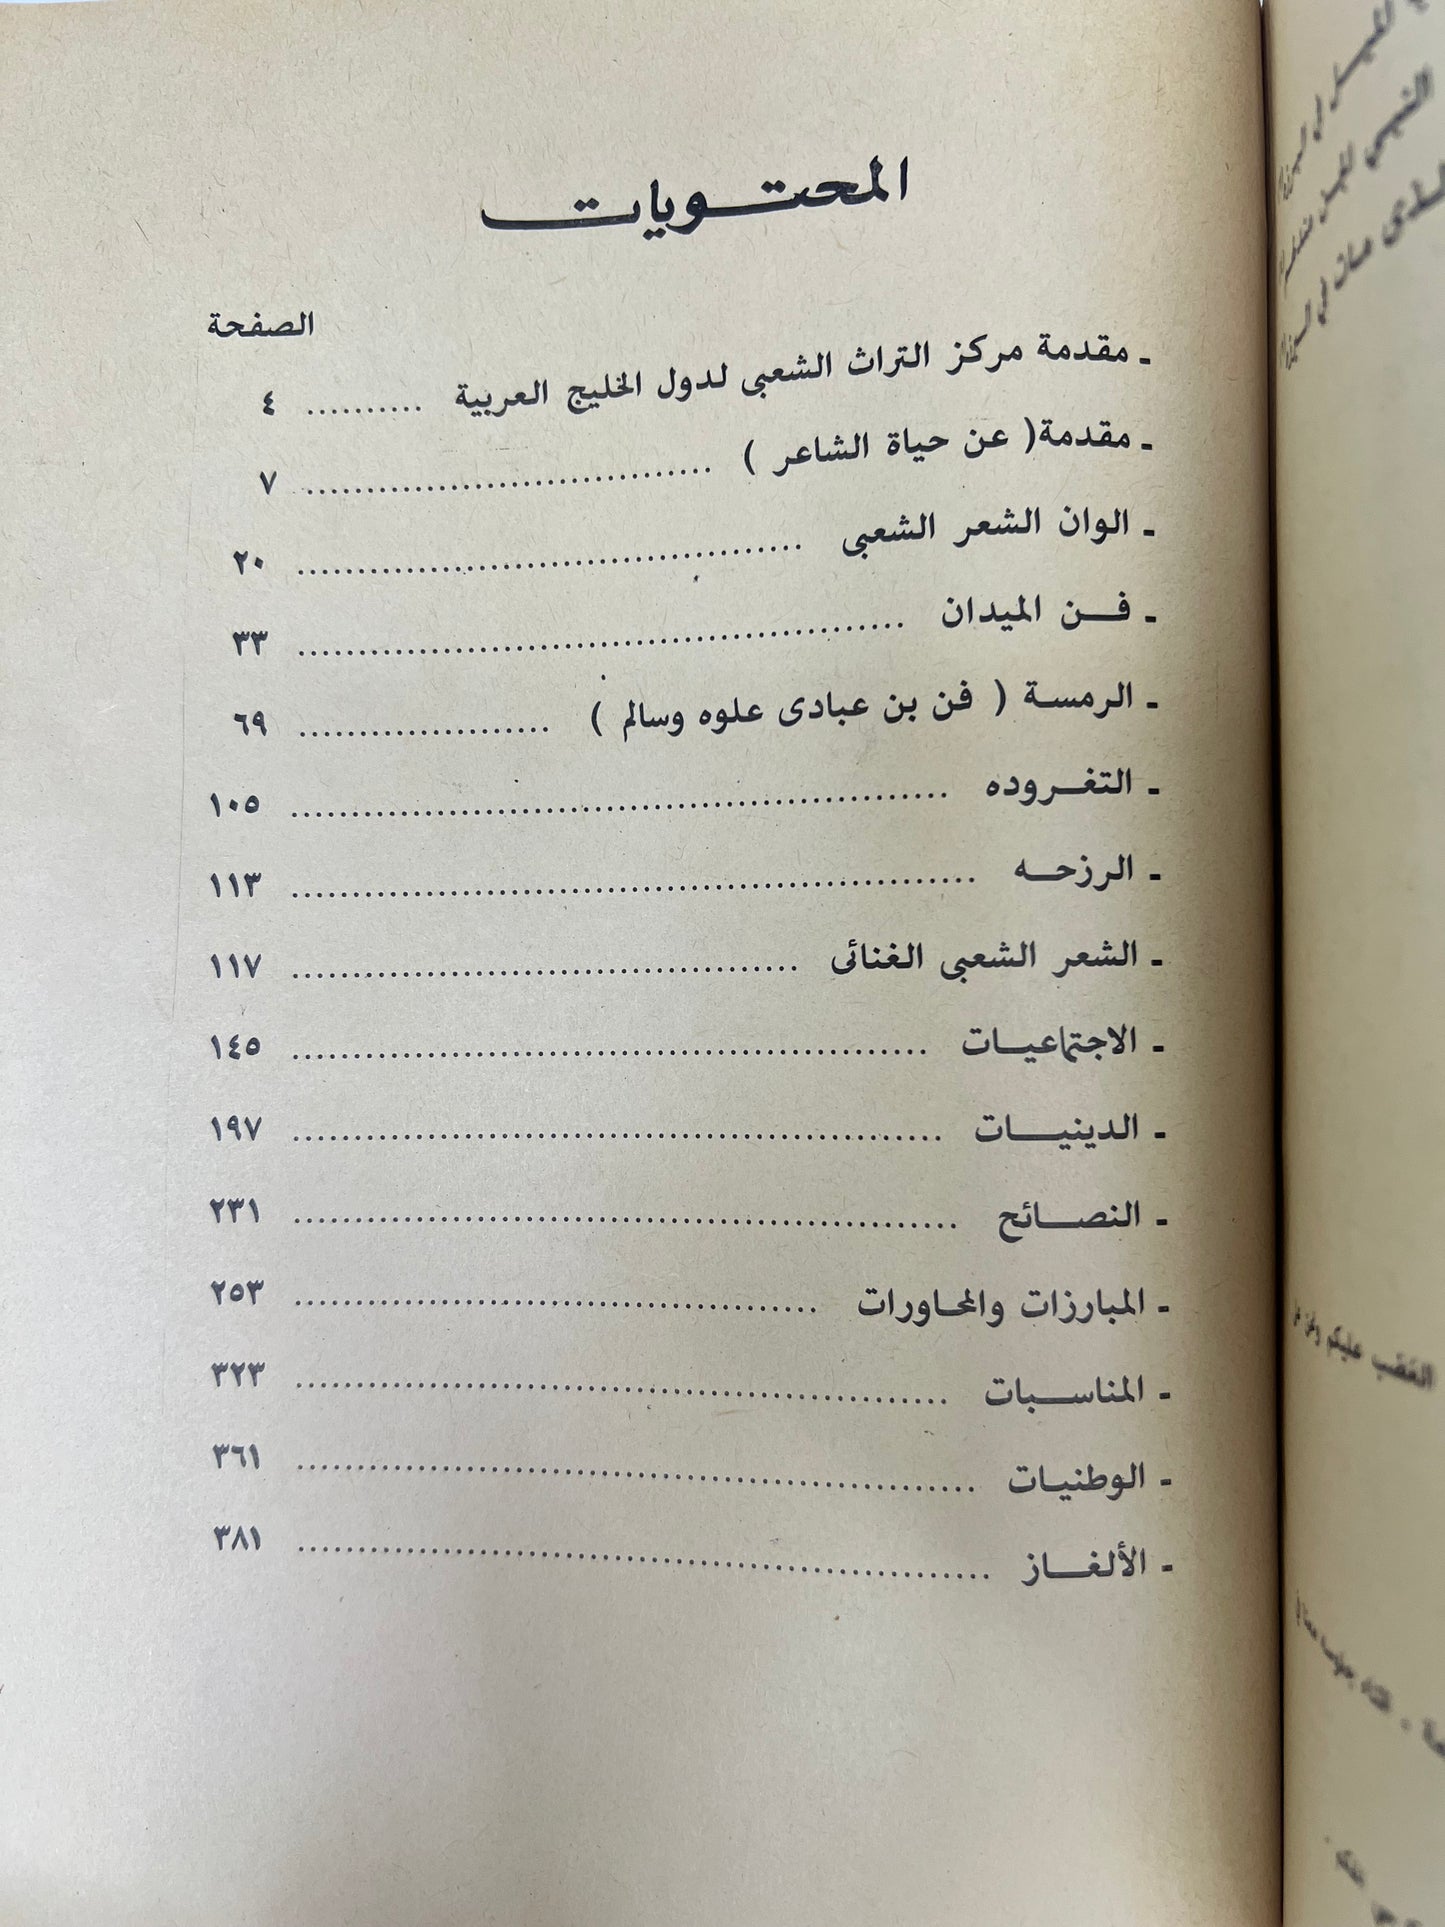 المحتويات
الصفحة
- مقدمة مركز التراث الشعبى لدول الخليج العربية .......... ٤
- مقدمة( عن حياة الشاعر ) .................................. ٧
- الوان الشعر الشعبى .......................................... ٢٠
- فـــن الميدان .................................................. ٣٣
- الرمسـة ( فن بن عبادى علوه وسالم ) ..................... ٦٩
- التغـــروده ...................................................... ١٠٥
- الرزحـــه ........................................................ ١١٣
- الشعر الشعبى الغنائى .......................................... ١١٧
- الاجتماعيــات .................................................... ١٤٥
- الدينيـــات ...................................................... ١٩٧
- النصـــائح ...................................................... ٢٣١
- المبارزات والمحاورات .......................................... ٢٥٣
- المناســـبات .................................................... ٣٢٣
- الوطنيـات ........................................................ ٣٦١
- الألغـــاز ........................................................ ٣٨١